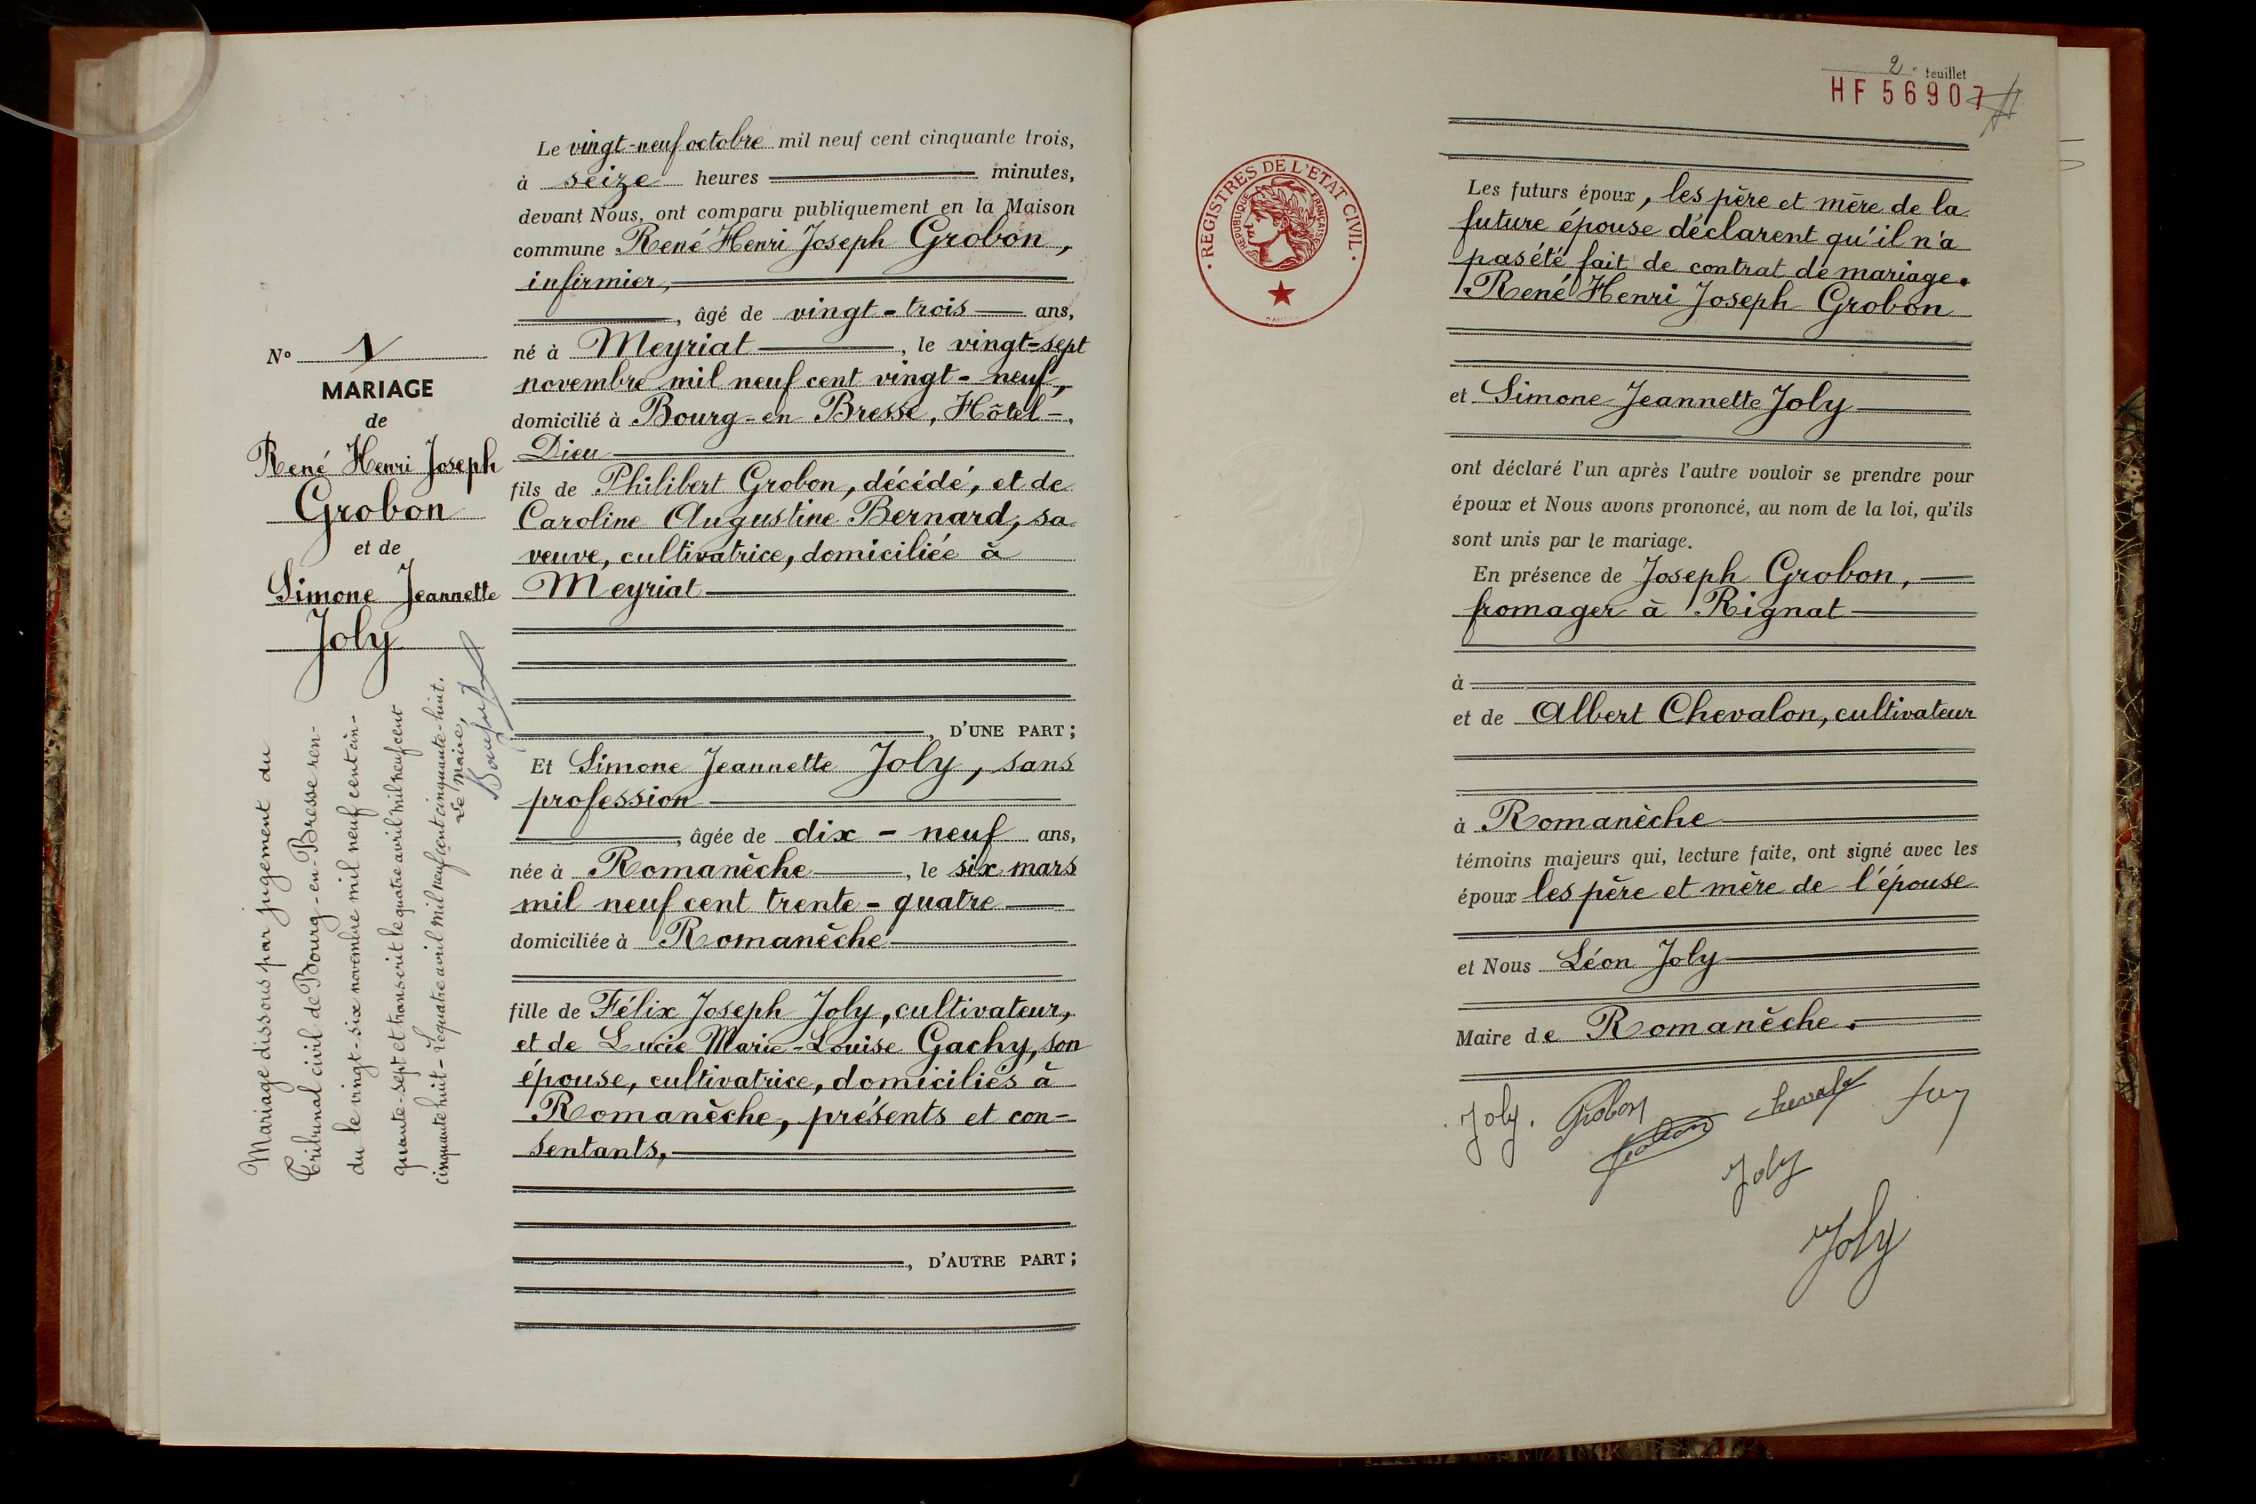 N° 1
MARIAGE
de
René Henri Joseph
Grobon
et de
Simone Jeannette
Joly
Mariage dissous par jugement du
Tribunal civil de Bourg-en-Bresse ren-
du le vingt-six novembre mil neuf cent cin-
quante-sept et transcrit le quatre avril mil neuf cent
cinquante huit - Le quatre avril mil neuf cent cinquante-huit.
Le Maire,
Le vingt-neuf octobre mil neuf cent cinquante trois,
à seize heures minutes,
devant Nous, ont comparu publiquement en la Maison
commune René Henri Joseph Grobon,
infirmier,
, âgé de vingt-trois ans,
né à Meyriat, le vingt-sept
novembre mil neuf cent vingt-neuf,
domicilié à Bourg-en Bresse, Hôtel-
Dieu
fils de Philibert Grobon, décédé, et de
Caroline Augustine Bernard, sa
veuve, cultivatrice, domiciliée à
Meyriat
, D'UNE PART ;
Et Simone Jeannette Joly, sans
profession
, âgée de dix-neuf ans,
née à Romanèche, le six mars
mil neuf cent trente-quatre
domiciliée à Romanèche
fille de Félix Joseph Joly, cultivateur,
et de Lucie Marie-Louise Gachy, son
épouse, cultivatrice, domiciliés à
Romanèche, présents et con-
sentants,
, D'AUTRE PART ;
2e feuillet
HF 56907
· REGISTRES DE L'ETAT CIVIL ·
REPUBLIQUE FRANÇAISE
Les futurs époux, les père et mère de la
future épouse déclarent qu'il n'a
pas été fait de contrat de mariage.
René Henri Joseph Grobon
et Simone Jeannette Joly
ont déclaré l'un après l'autre vouloir se prendre pour
époux et Nous avons prononcé, au nom de la loi, qu'ils
sont unis par le mariage.
En présence de Joseph Grobon,
fromager à Rignat
à
et de Albert Chevalon, cultivateur
à Romanèche
témoins majeurs qui, lecture faite, ont signé avec les
époux les père et mère de l'épouse
et Nous Léon Joly
Maire de Romanèche.
Joly. Grobon
Joly
Joly